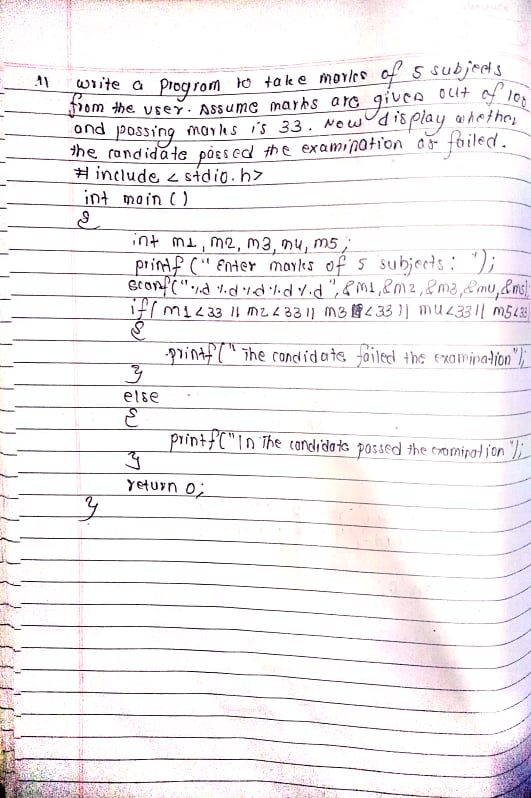 1) write a program to take marks of 5 subjects
from the user. Assume marks are given out of 100
and passing marks is 33. Now display whether
the candidate passed the examination or failed.
# include < stdio.h>
int main ()
{
int m1, m2, m3, m4, m5;
printf (" Enter marks of 5 subjects: ");
scanf("%d %d %d %d %d", &m1, &m2, &m3, &m4, &m5)
if( m1<33 || m2<33 || m3 <33 || m4<33 || m5<33
{
printf(" The candidate failed the examination");
}
else
{
printf("\n The candidate passed the examination");
}
return 0;
}